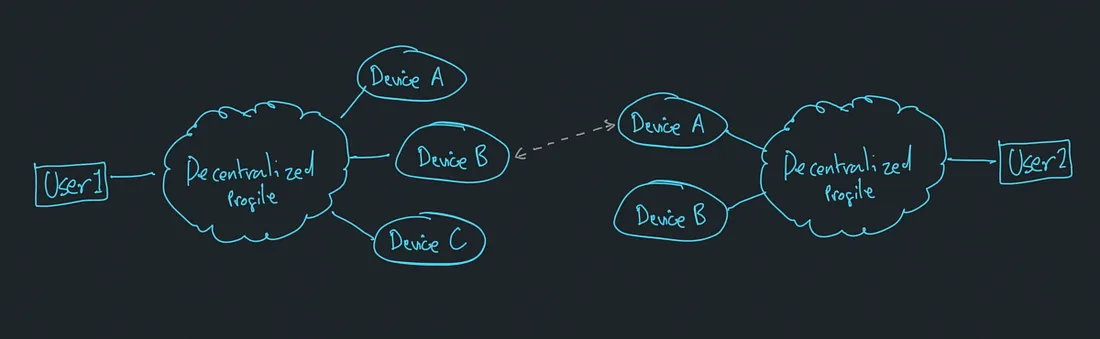 User1
Decentralized
Profile
Device A
Device B
Device C
Device A
Device B
Decentralized
Profile
User2